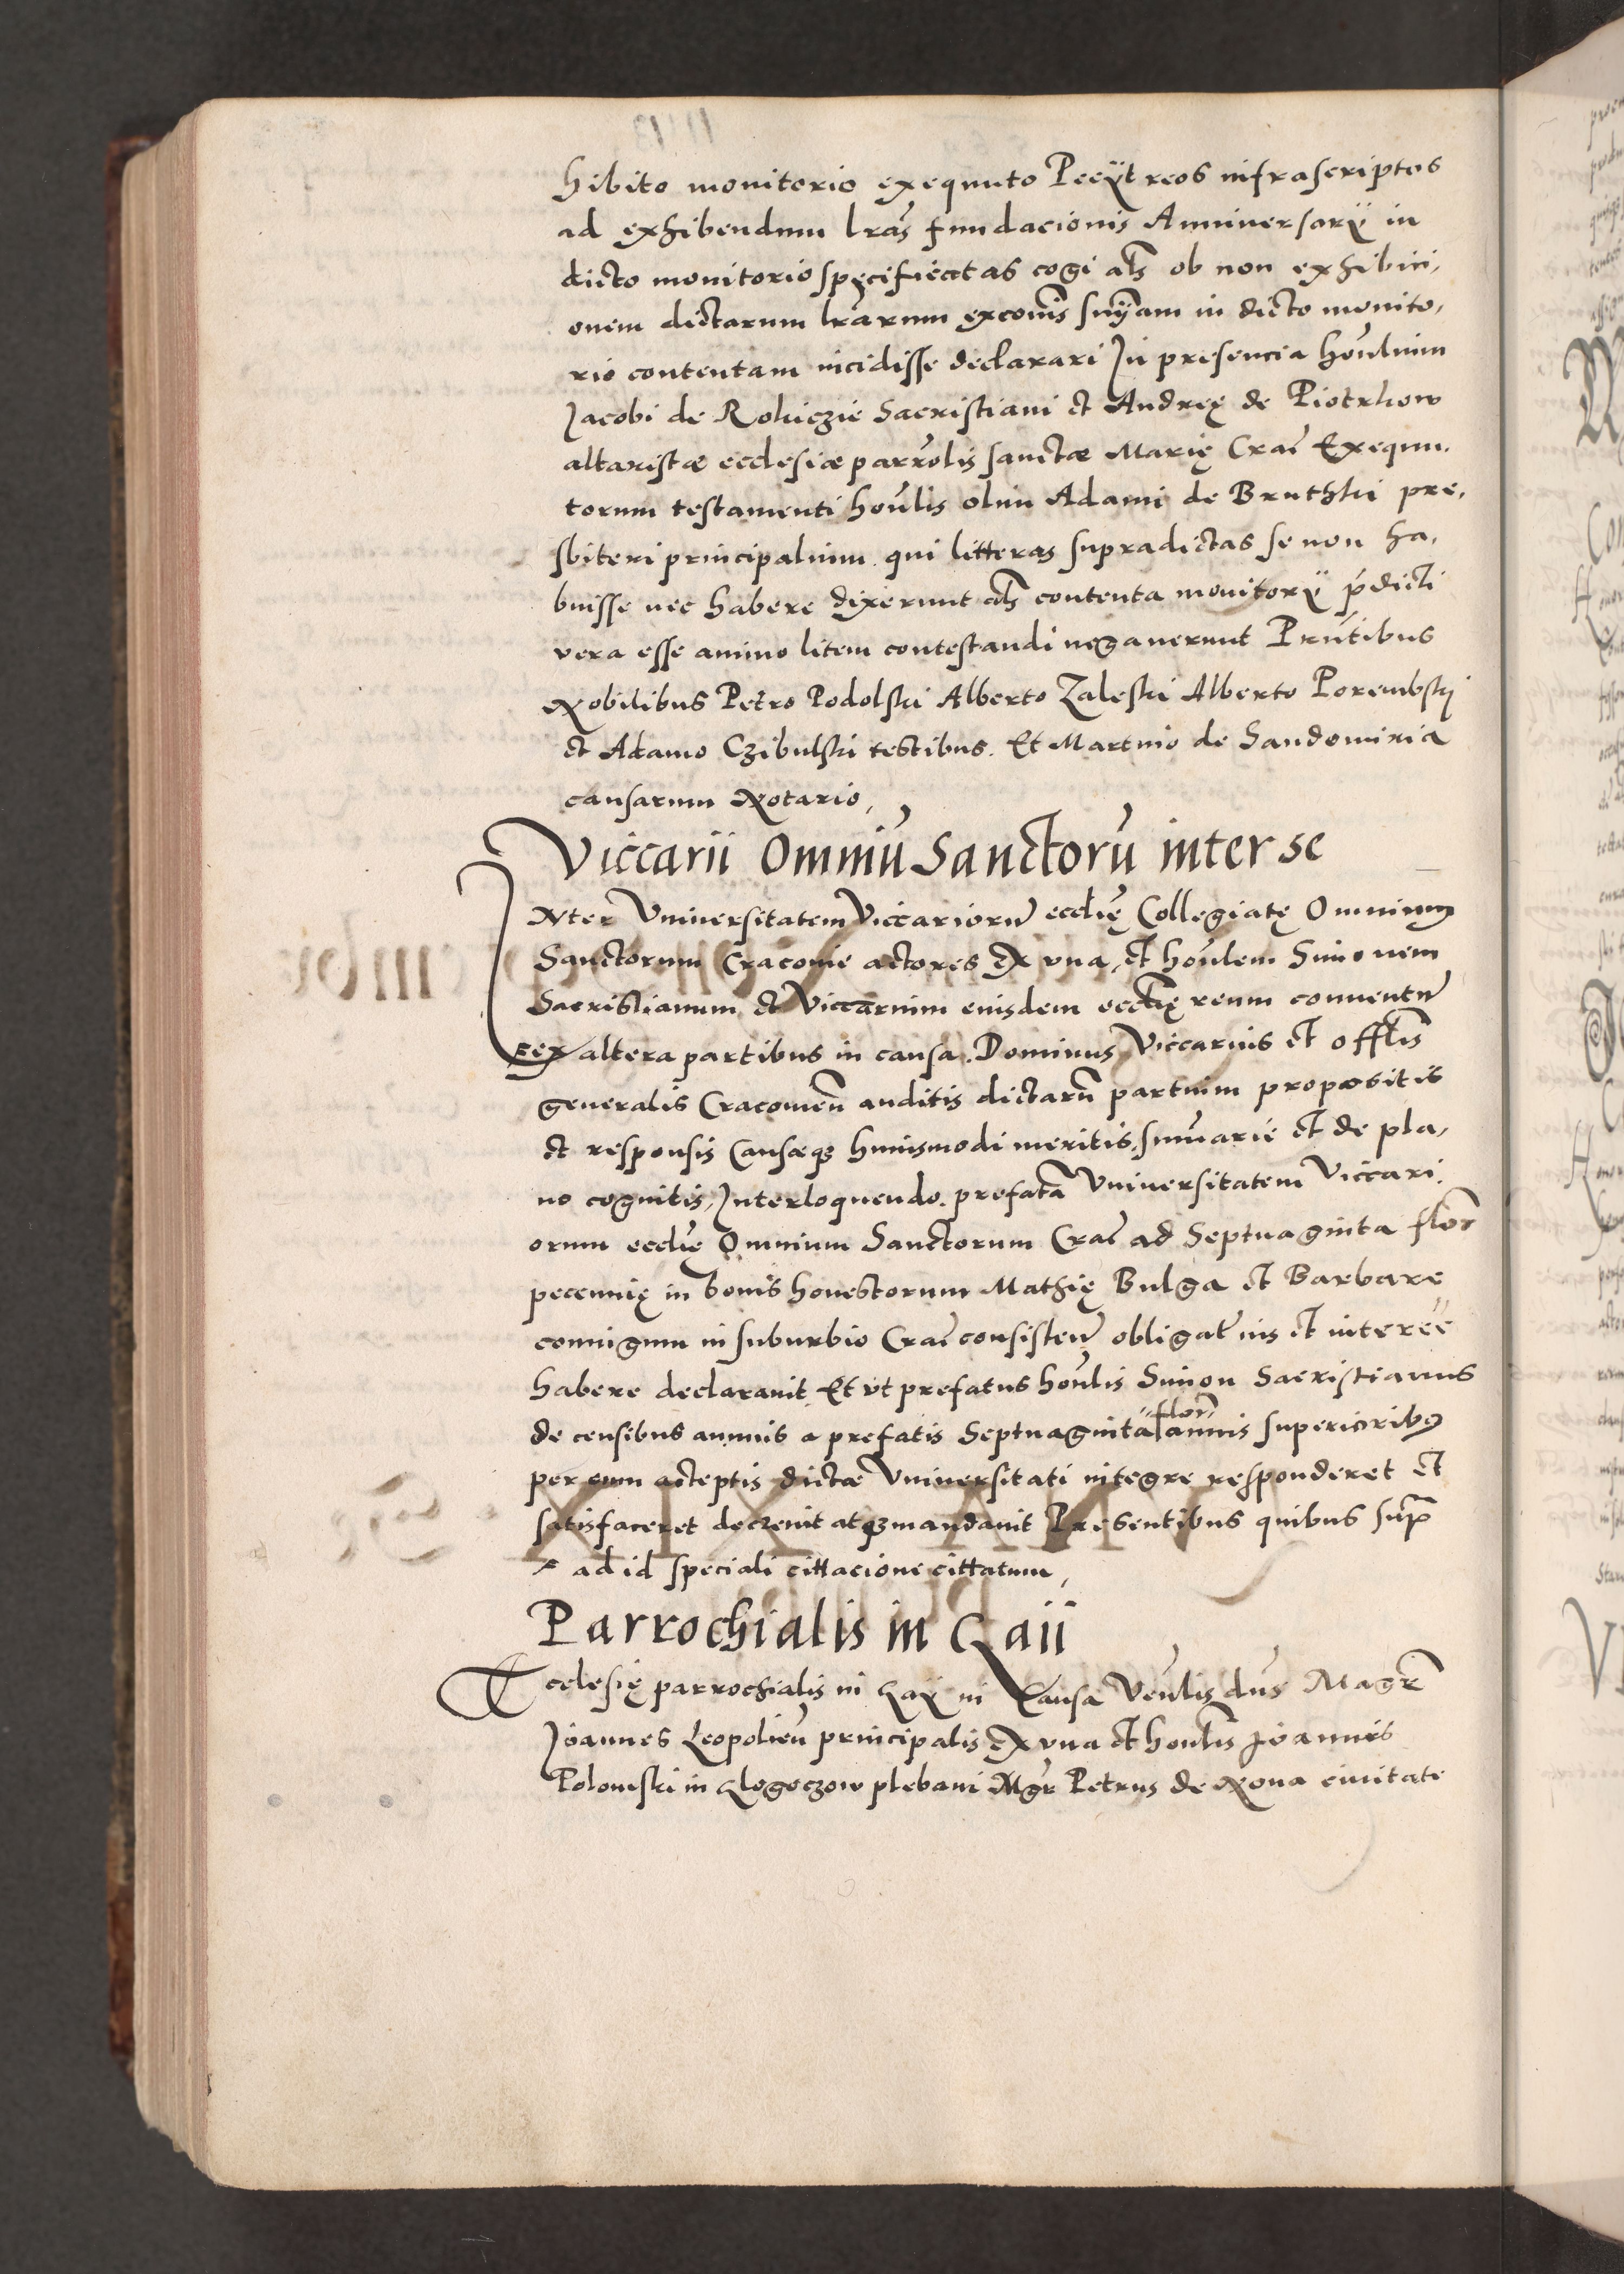 hibito monitorio exequuto Peeÿt reos infrascriptos
ad exhibendum lras fundacionis Anniversarÿ in
dicto monitorio specificatas cogi als ob non exhibici,
onem dictarum lrarum excom̃is sniam in dicto monito,
rio contentam incidisse declarari In presencia hon̄lium
Jacobi de Rokiczie Sacristiani et Andreę de Piotrkow
altaristæ ecclesiæ parrōlis sanctæ Marię Crac̄ Exequu,
torum testamenti hon̄lis olim Adami de Bruthki pre,
sbiteri principalium. qui litteras supradictas se non ha,
buisse nec habere dixerunt als contenta monitorÿ p̄dicti
vera esse animo litem contestandi negaverunt Pn̄tibus
Nobilibus Petro Podolski Alberto Zaleski Alberto Porembskj
et Adamo Czibulski testibus. Et Martino de Sandomiria
causarum Notario,
Viccarii Omniū Sanctorū inter se
INter Vniversitatem Viccariorū ecclīę Collegiatę Omnium
Sanctorum Cracovie actores ex vna, et hon̄lem Simonem
Sacristianum et Viccarium eiusdem ecclīę reum conventū
ex altera partibus in causa. Dominus Viccarius et offlīs
generalis Cracovien̄ auditis dictarū partium propositis
et responsis Causæq3 huiusmodi meritis, sum̄arie et de pla,
no cognitis, Interloquendo. prefatā Vniversitatem Viccari,
orum ecclīę Omnium Sanctorum Crac̄ ad Septuaginta flor̄
pecunię in bonis honestorum Mathię Bulga et Barbare
coniugum in suburbio Crac̄ consisten̄ obligat̄ ius et intereē
habere declaravit Et vt prefatus hon̄lis Simon Sacristianus
de censibus annuis a prefatis Septuaginta flor̄ annis superioribus
per eum acceptis dictæ Vniversitati integre responderet et
satisfaceret decrevit atq3 mandavit Presentibus quibus sup̄
ad id speciali cittacione cittatum,
Parrochialis in Gaii
Ecclesię parrochialis in Gaÿ in Causa Ven̄lis dn̄s Magr̄
Joannes Leopolien̄ principalis ex vna et hon̄lis Joannis
Polonski in Glogoczow plebani Mgr̄ Petrus de Nova civitate